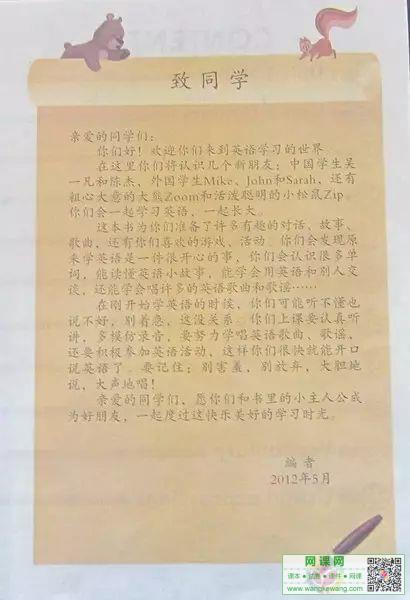 致同学
亲爱的同学们：
你们好！欢迎你们来到英语学习的世界。
在这里你们将认识几个新朋友：中国学生吴
一凡和陈杰、外国学生Mike、John和Sarah，还有
粗心大意的大熊Zoom和活泼聪明的小松鼠Zip。
你们会一起学习英语，一起长大。
这本书为你们准备了许多有趣的对话、故事、
歌曲，还有你们喜欢的游戏、活动。你们会发现原
来学英语是一件很开心的事，你们会认识很多单
词，能读懂英语小故事，能学会用英语和别人交
谈，还能学会唱许多的英语歌曲和歌谣……
在刚开始学英语的时候，你们可能听不懂也
说不好，别着急，这没关系。你们上课要认真听
讲，多模仿录音，要努力学唱英语歌曲、歌谣，
还要积极参加英语活动，这样你们很快就能开口
说英语了。要记住：别害羞，别放弃，大胆地
说，大声地唱！
亲爱的同学们，愿你们和书里的小主人公成
为好朋友，一起度过这快乐美好的学习时光。
编者
2012年5月
网课网
课本·试卷·课件·网课
www.wangkewang.com